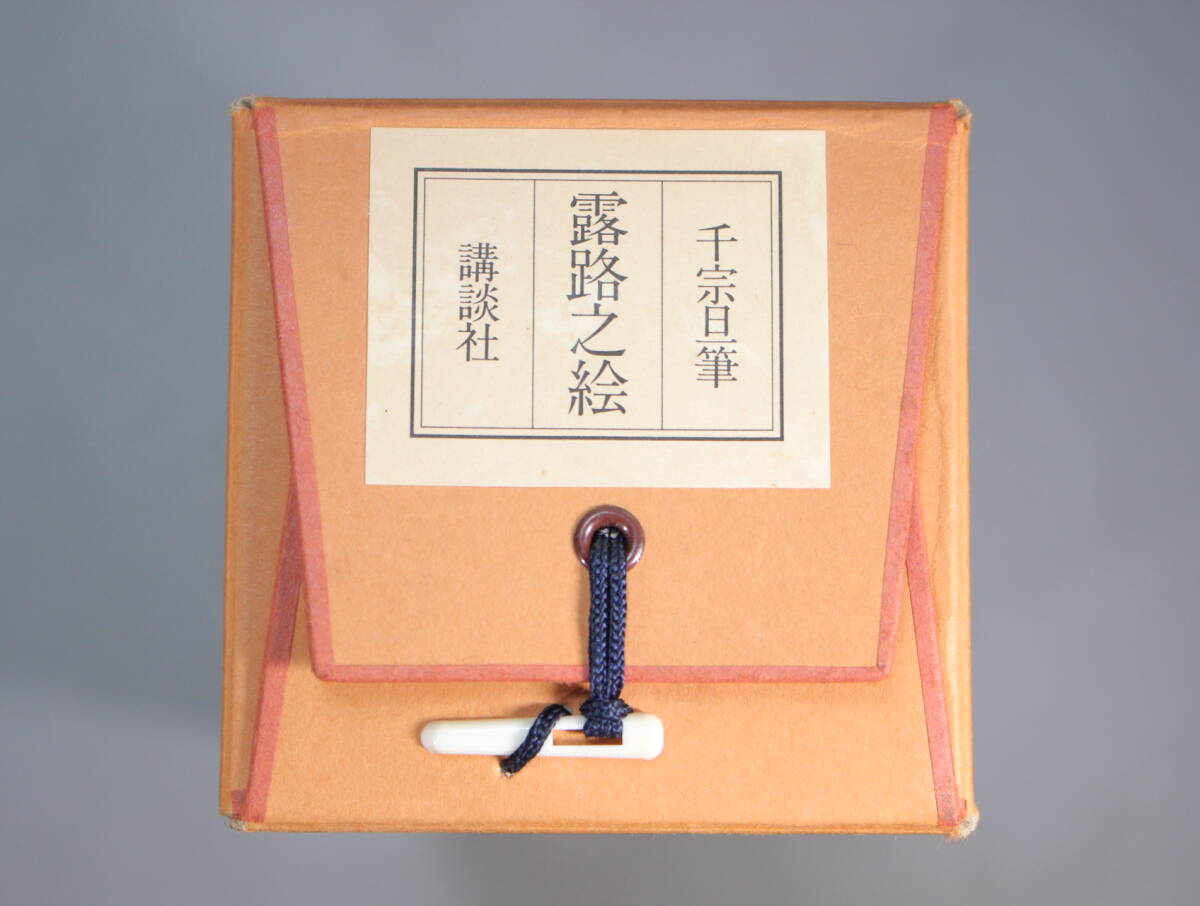 千宗旦筆
露路之絵
講談社